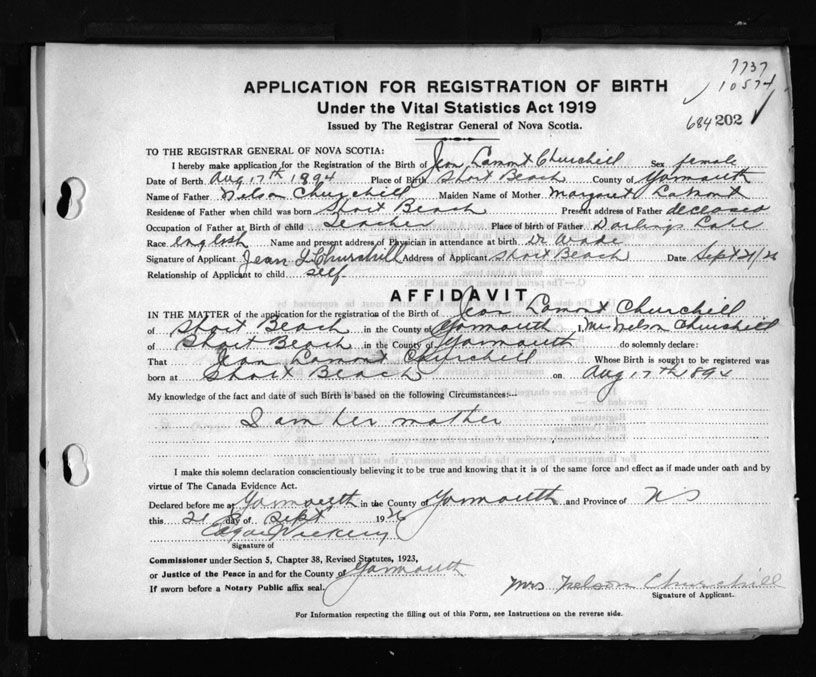 7737
10574
684 202
APPLICATION FOR REGISTRATION OF BIRTH
Under the Vital Statistics Act 1919
Issued by The Registrar General of Nova Scotia.
TO THE REGISTRAR GENERAL OF NOVA SCOTIA:
I hereby make application for the Registration of the Birth of Jean Lamont Churchill Sex female
Date of Birth Aug 17th 1894 Place of Birth Short Beach County of Yarmouth
Name of Father Nelson Churchill Maiden Name of Mother Margaret Lamont
Residence of Father when child was born Short Beach Present address of Father deceased
Occupation of Father at Birth of child Teacher Place of birth of Father Darlings Lake
Race english Name and present address of Physician in attendance at birth Dr Wade
Signature of Applicant Jean L Churchill Address of Applicant Short Beach Date Sept 21/26
Relationship of Applicant to child self
AFFIDAVIT
IN THE MATTER of the application for the registration of the Birth of Jean Lamont Churchill
of Short Beach in the County of Yarmouth I, Mrs Nelson Churchill
of Short Beach in the County of Yarmouth do solemnly declare:
That Jean Lamont Churchill Whose Birth is sought to be registered was
born at Short Beach on Aug 17th 1894
My knowledge of the fact and date of such Birth is based on the following Circumstances:--
I am her mother
I make this solemn declaration conscientiously believing it to be true and knowing that it is of the same force and effect as if made under oath and by
virtue of The Canada Evidence Act.
Declared before me at Yarmouth in the County of Yarmouth and Province of NS
this 21 day of Sept 1926
Signature of
Commissioner under Section 5, Chapter 38, Revised Statutes, 1923,
or Justice of the Peace in and for the County of Yarmouth
If sworn before a Notary Public affix seal.
Mrs Nelson Churchill
Signature of Applicant.
For Information respecting the filling out of this Form, see Instructions on the reverse side.